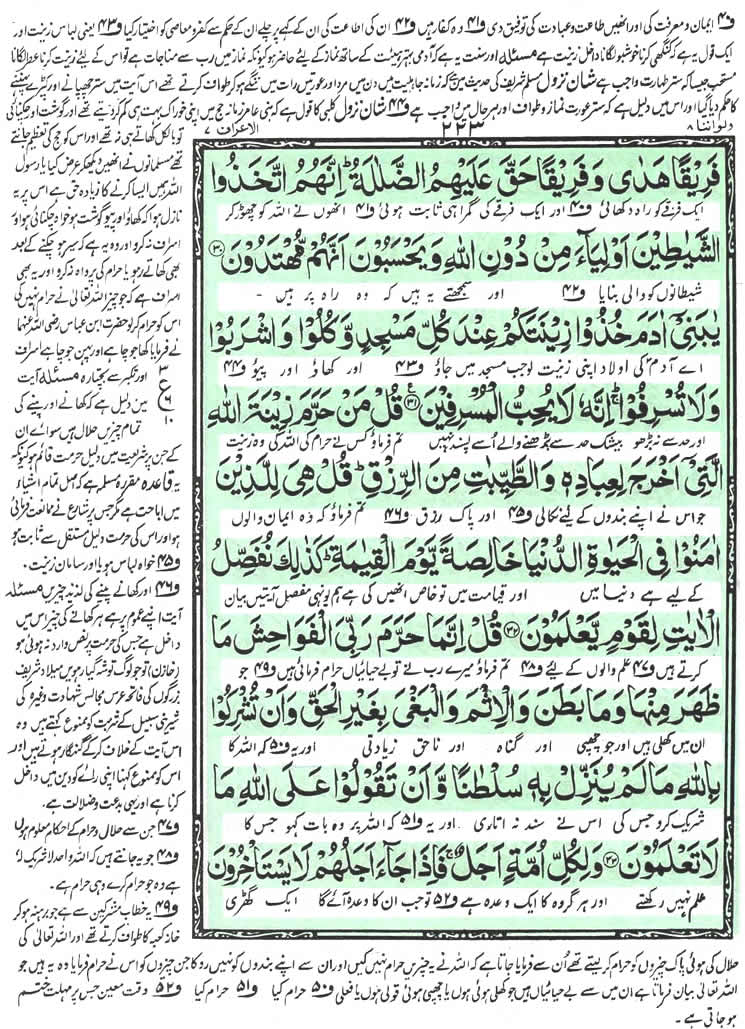 ف۴۰ ایمان و معرفت کی اور انھیں طاعت و عبادت کی توفیق دی ف۴۱ وہ کفار ہیں ف۴۲ ان کی اطاعت کی ان کے کہے پر چلے ان کے حکم سے کفر و معاصی کو اختیار کیا ف۴۳ یعنی لباس زینت اور
ایک قول یہ ہے کہ کنگھی کرنا خوشبو لگانا داخل زینت ہے مسئلہ اور سنت یہ ہے کہ آدمی بہتر ہیئت کے ساتھ نماز کے لیئے حاضر ہو کیونکہ نماز میں رب سے مناجات ہے تو اس کے لیئے زینت کرنا عطر لگانا
مستحب جیسا کہ ستر طہارت واجب ہے شان نزول مسلم شریف کی حدیث میں ہے کہ زمانہ جاہلیت میں دن میں مرد اور عورتیں رات میں ننگے ہو کر طواف کرتے تھے اس آیت میں ستر چھپانے اور کپڑے پہننے
کا حکم دیا گیا اور اس میں دلیل ہے کہ ستر عورت نماز و طواف اور ہر حال میں واجب ہے ف۴۴ شان نزول کلبی کا قول ہے کہ بنی عامر زمانہ حج میں اپنی خوراک بہت ہی کم کر دیتے تھے اور گوشت اور چکنائی
ولو اننا ۸
۲۲۳
الاعراف ۷
فَرِيْقًا هَدٰى وَ فَرِيْقًا حَقَّ عَلَيْهِمُ الضَّلٰلَةُ ؕ اِنَّهُمُ اتَّخَذُوا
ایک فرقے کو راہ دکھائی ف۴۰ اور ایک فرقے کی گمراہی ثابت ہوئی ف۴۱ انھوں نے اللہ کو چھوڑ کر
الشَّيٰطِيْنَ اَوْلِيَآءَ مِنْ دُوْنِ اللّٰهِ وَ يَحْسَبُوْنَ اَنَّهُمْ مُّهْتَدُوْنَ ﴿۳۰﴾
شیطانوں کو والی بنایا ف۴۲ اور سمجھتے یہ ہیں کہ وہ راہ پر ہیں -
يٰبَنِيْٓ اٰدَمَ خُذُوْا زِيْنَتَكُمْ عِنْدَ كُلِّ مَسْجِدٍ وَّ كُلُوْا وَ اشْرَبُوْا
اے آدم کی اولاد اپنی زینت لو جب مسجد میں جاؤ ف۴۳ اور کھاؤ اور پیؤ ف۴۴
وَ لَا تُسْرِفُوْا ؕۚ اِنَّهٗ لَا يُحِبُّ الْمُسْرِفِيْنَ ﴿۳۱﴾ قُلْ مَنْ حَرَّمَ زِيْنَةَ اللّٰهِ
اور حد سے نہ بڑھو بیشک حد سے بڑھنے والے اسے پسند نہیں تم فرماؤ کس نے حرام کی اللہ کی وہ زینت
الَّتِيْٓ اَخْرَجَ لِعِبَادِهٖ وَ الطَّيِّبٰتِ مِنَ الرِّزْقِ ؕ قُلْ هِيَ لِلَّذِيْنَ
جو اس نے اپنے بندوں کے لیئے نکالی ف۴۵ اور پاک رزق ف۴۶ تم فرماؤ کہ وہ ایمان والوں
اٰمَنُوْا فِي الْحَيٰوةِ الدُّنْيَا خَالِصَةً يَّوْمَ الْقِيٰمَةِ ؕ كَذٰلِكَ نُفَصِّلُ
کے لیے ہے دنیا میں اور قیامت میں تو خاص انھیں کی ہے ہم یونہی مفصل آیتیں بیان
الْاٰيٰتِ لِقَوْمٍ يَّعْلَمُوْنَ ﴿۳۲﴾ قُلْ اِنَّمَا حَرَّمَ رَبِّيَ الْفَوَاحِشَ مَا
کرتے ہیں ف۴۷ علم والوں کے لیئے ف۴۸ تم فرماؤ میرے رب نے تو بے حیائیاں حرام فرمائی ہیں ف۴۹ جو
ظَهَرَ مِنْهَا وَ مَا بَطَنَ وَ الْاِثْمَ وَ الْبَغْيَ بِغَيْرِ الْحَقِّ وَ اَنْ تُشْرِكُوْا
ان میں کھلی ہیں اور جو چھپی اور گناہ اور ناحق زیادتی اور یہ ف۵۰ کہ اللہ کا
بِاللّٰهِ مَا لَمْ يُنَزِّلْ بِهٖ سُلْطٰنًا وَّ اَنْ تَقُوْلُوْا عَلَى اللّٰهِ مَا
شریک کرو جس کی اس نے سند نہ اتاری اور یہ ف۵۱ کہ اللہ پر وہ بات کہو جس کا
لَا تَعْلَمُوْنَ ﴿۳۳﴾ وَ لِكُلِّ اُمَّةٍ اَجَلٌ ۚ فَاِذَا جَآءَ اَجَلُهُمْ لَا يَسْتَاْخِرُوْنَ
علم نہیں رکھتے اور ہر گروہ کا ایک وعدہ ہے ف۵۲ تو جب ان کا وعدہ آئے گا ایک گھڑی
تو بالکل کھاتے ہی نہ تھے اور اس کو حج کی تعظیم جانتے
تھے مسلمانوں نے انھیں دیکھ کر عرض کیا یا رسول
اللہ ہمیں ایسا کرنے کا زیادہ حق ہے اس پر یہ
نازل ہوا کہ کھاؤ اور پیو گوشت ہو خواہ چکنائی ہو اور
اسراف نہ کرو اور وہ یہ ہے کہ سیر ہو چکنے کے بعد
بھی کھاتے رہو یا حرام کی پرواہ نہ کرو اور یہ بھی
اسراف ہے کہ جو چیز اللہ تعالیٰ نے حرام نہیں کی
اس کو حرام کر لو حضرت ابن عباس رضی اللہ عنہما
نے فرمایا کھا جو چاہے اور پہن جو چاہے اسراف
اور تکبر سے بچتا رہ مسئلہ آیت
میں دلیل ہے کہ کھانے اور پینے کی
تمام چیزیں حلال ہیں سوائے ان
۳
ع
۶
۱۰
کے جن پر شریعت میں دلیل حرمت قائم ہو کیونکہ
یہ قاعدہ مقررہ مسلمہ ہے کہ اصل تمام اشیاء
میں اباحت ہے مگر جس پر شارع نے ممانعت فرمائی
ہو اور اس کی حرمت دلیل مستقل سے ثابت ہو
ف۴۵ خواہ لباس ہو یا اور سامان زینت .
ف۴۶ اور کھانے پینے کی لذیذ چیزیں مسئلہ
آیت اپنے عموم پر ہے ہر کھانے کی چیز اس میں
داخل ہے جس کی حرمت پر نص وارد نہ ہوئی ہو
(خازن) تو جو لوگ توشہ گیارہویں میلاد شریف
بزرگوں کی فاتحہ عرس مجالس شہادت وغیرہ کی
شیرینی سبیل کے شربت کو ممنوع کہتے ہیں وہ
اس آیت کے خلاف کر کے گنہگار ہوتے ہیں اور
اس کو ممنوع کہنا اپنی رائے کو دین میں داخل
کرنا ہے اور یہی بدعت و ضلالت ہے .
ف۴۷ جن سے حلال و حرام کے احکام معلوم ہوں
ف۴۸ جو یہ جانتے ہیں کہ اللہ واحد لا شریک لہ
ہے وہ جو حرام کرے وہی حرام ہے .
ف۴۹ یہ خطاب مشرکین سے ہے جو برہنہ ہو کر
خانہ کعبہ کا طواف کرتے تھے اور اللہ تعالیٰ کی
حلال کی ہوئی پاک چیزوں کو حرام کر لیتے تھے ان سے فرمایا جاتا ہے کہ اللہ نے یہ چیزیں حرام نہیں کیں اور ان سے اپنے بندوں کو نہیں روکا جن چیزوں کو اس نے حرام فرمایا وہ یہ ہیں جو
اللہ تعالیٰ بیان فرماتا ہے ان میں سے بے حیائیاں ہیں جو کھلی ہوئی ہوں یا چھپی ہوئی قولی ہوں یا فعلی ف۵۰ حرام کیا ف۵۱ حرام کیا ف۵۲ وقت معین جس پر مہلت ختم
ہو جاتی ہے .